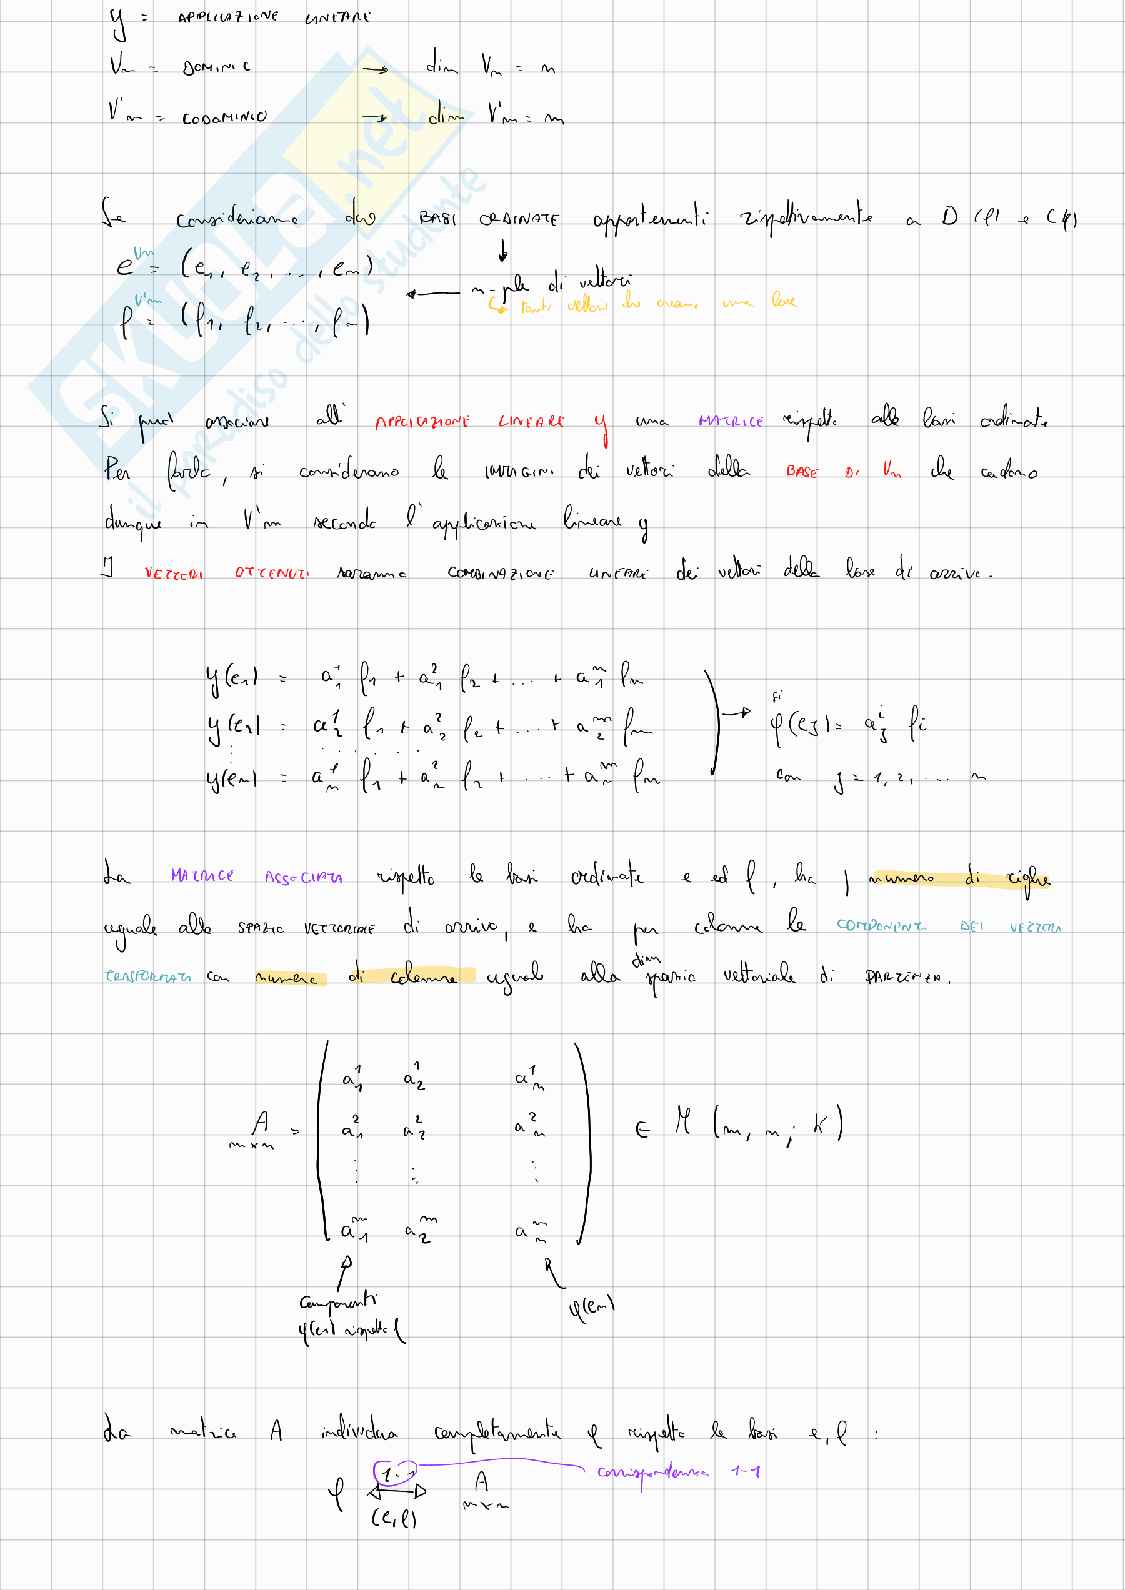 φ = APPLICAZIONE LINEARE
Vn = DOMINIO → dim Vn = n
V'm = CODOMINIO → dim V'm = m
Se consideriamo due BASI ORDINATE appartenenti rispettivamente a D(φ) e C(φ)
e^Vn = (e1, e2, ..., en)
n-ple di vettori
tanti vettori che creano una base
f^V'm = (f1, f2, ..., fm)
Si può associare all' APPLICAZIONE LINEARE φ una MATRICE rispetto alle basi ordinate
Per farlo, si considerano le IMMAGINI dei vettori della BASE DI Vn che cadono
dunque in V'm secondo l'applicazione lineare φ
I VETTORI OTTENUTI saranno COMBINAZIONE LINEARE dei vettori della base di arrivo.
φ(e1) = a^1_1 f1 + a^2_1 f2 + ... + a^m_1 fm
φ(e2) = a^1_2 f1 + a^2_2 f2 + ... + a^m_2 fm → φ(ej) = a^i_j fi
φ(en) = a^1_n f1 + a^2_n f2 + ... + a^m_n fm con j = 1, 2, ... n
La MATRICE ASSOCIATA rispetto le basi ordinate e ed f, ha numero di righe
uguale allo SPAZIO VETTORIALE di arrivo, e ha per colonne le COMPONENTI DEI VETTORI
TRASFORMATI con numero di colonne uguale alla dim spazio vettoriale di PARTENZA.
a^1_1 a^1_2 a^1_n
A m×n = a^2_1 a^2_2 a^2_n ∈ M (m, n; K)
⋮ ⋮ ⋮
a^m_1 a^m_2 a^m_n
componenti
φ(e1) rispetto f
φ(en)
La matrice A individua completamente φ rispetto le basi e, f :
φ 1-1 A corrispondenza 1-1
(e, f) m×n
SKUOLA.net
il paradiso dello studente